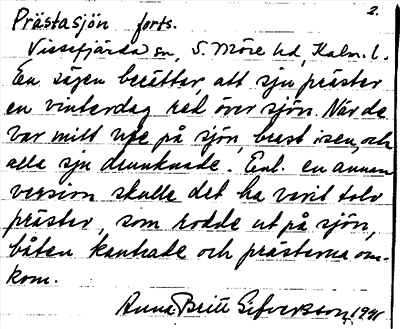 2.
Prästasjön forts.
Vissefjärda sn, S. Möre hd, Kalm. l.
En sägen berättar, att sju präster
en vinterdag red över sjön. När de
var mitt ute på sjön, brast isen, och
alla sju drunknade. Enl. en annan
version skulle det ha varit tolv
präster, som rodde ut på sjön,
båten kantrade och prästerna om-
kom.
Anna Britt Sifversson, 1941